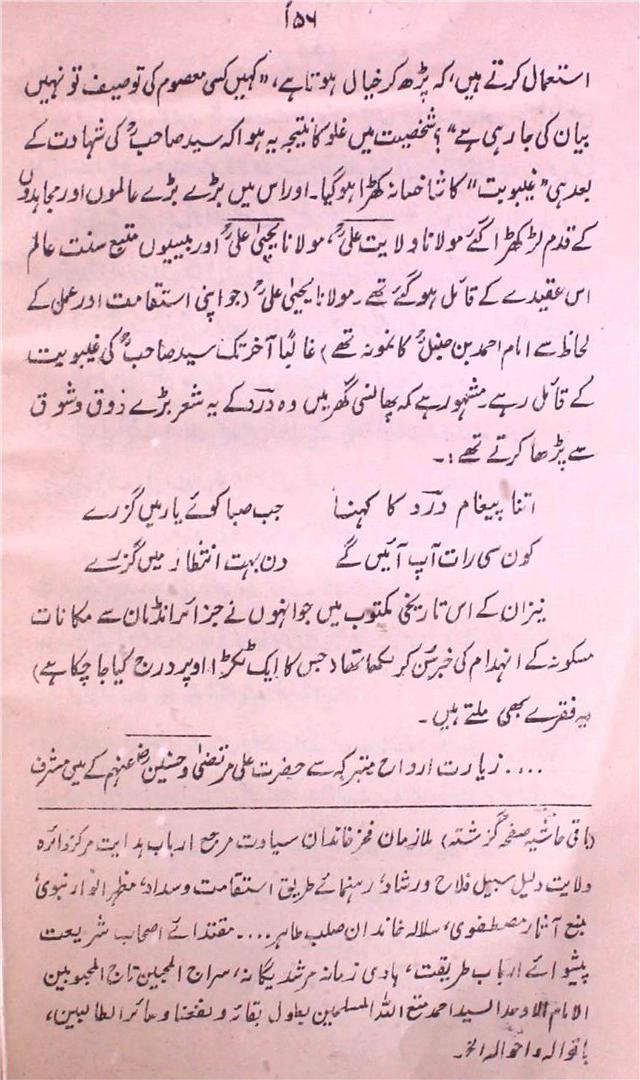 ۱۵۶
استعمال کرتے ہیں، کہ پڑھ کر خیال ہوتا ہے، "کہیں کسی معصوم کی توصیف تو نہیں
بیان کی جا رہی ہے"؟ شخصیت میں غلو کا نتیجہ یہ ہوا کہ سید صاحبؒ کی شہادت کے
بعد ہی "غیبوبت" کا شاخسانہ کھڑا ہو گیا۔ اور اس میں بڑے بڑے عالموں اور مجاہدوں
کے قدم لڑکھڑا گئے مولانا ولایت علیؒ، مولانا یحییٰ علیؒ اور بیسیوں متبع سنت عالم
اس عقیدے کے قائل ہو گئے تھے۔ مولانا یحییٰ علیؒ (جو اپنی استقامت اور عمل کے
لحاظ سے امام احمد بن حنبلؒ کا نمونہ تھے) غالبًا آخر تک سید صاحبؒ کی غیبوبت
کے قائل رہے۔ مشہور ہے کہ پھانسی گھر میں وہ درد کے یہ شعر بڑے ذوق و شوق
سے پڑھا کرتے تھے :۔
اتنا پیغام درد کا کہنا جب صبا کوئے یار میں گزرے
کون سی رات آپ آئیں گے دن بہت انتظار میں گزرے
نیز ان کے اس تاریخی مکتوب میں جو انہوں نے جزائر انڈمان سے مکانات
مسکونہ کے انہدام کی خبر سن کر لکھا تھا (جس کا ایک ٹکڑا اوپر درج کیا جا چکا ہے)
یہ فقرے بھی ملتے ہیں۔
.... زیارت ارواح متبرکہ سے حضرت علی مرتضیٰ و حسنین رضی عنہم کے میں مشرف
(باقی حاشیہ صفحہ گزشتہ) ملازمان فخر خاندان سیادت مرجع ارباب ہدایت مرکز دائرہ
ولایت دلیل سبیل فلاح و رشاد، رہنمائے طریق استقامت و سداد، مظہر انوار نبوی،
منبع آثار مصطفوی، سلالہ خاندان صلب طاہر.... مقتدائے اصحاب شریعت
پیشوائے ارباب طریقت، ہادی زمانہ مرشد یگانہ، سراج المحبین تاج المحبوبین
الامام الاوحد السید احمد متع اللہ المسلمین بطول بقائہ و نفعنا و سائر الطالبین،
باقوالہ و احوالہ الخ۔